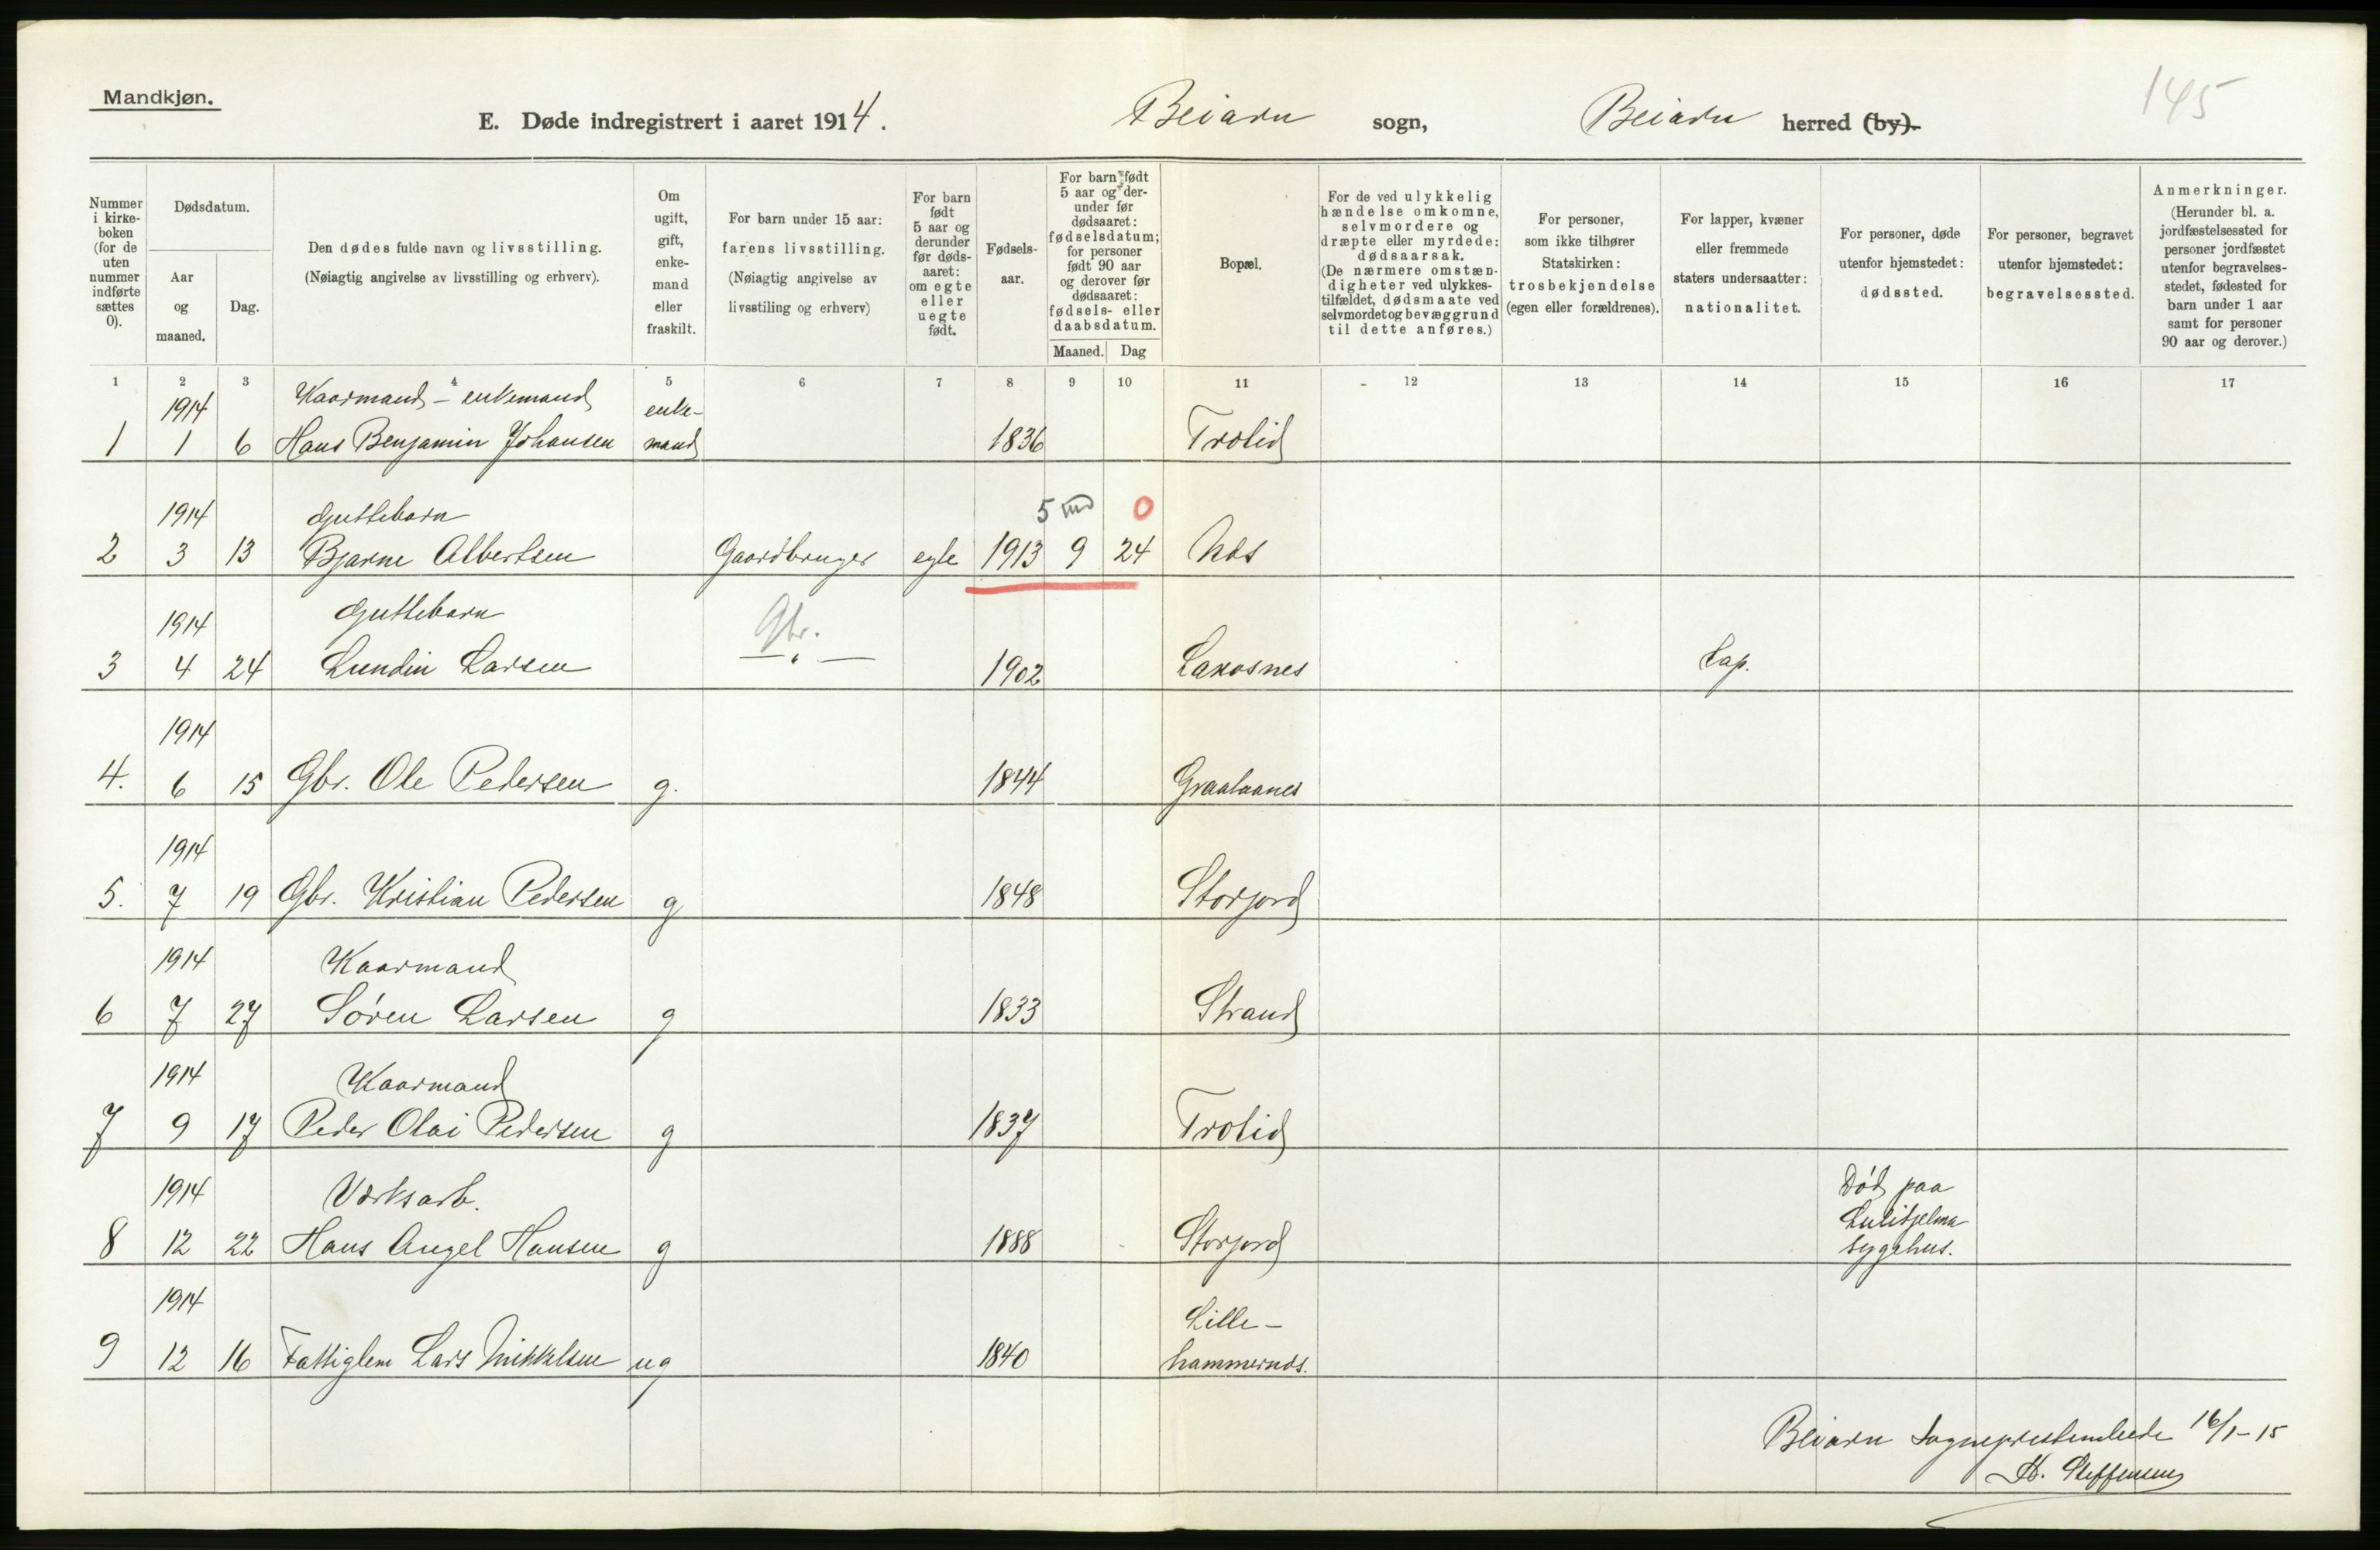 Mandkjøn.
145
E. Døde indregistrert i aaret 1914. Beiarn sogn, Beiarn herred (by).
Nummer i kirke-boken (for de uten nummer indførte sættes 0).
Dødsdatum.
Aar og maaned.
Dag.
Den dødes fulde navn og livsstilling.
(Nøiagtig angivelse av livsstilling og erhverv).
Om ugift, gift, enke-mand eller fraskilt.
For barn under 15 aar:
farens livsstilling.
(Nøiagtig angivelse av
livsstiling og erhverv)
For barn født 5 aar og derunder før døds-aaret: om egte eller uegte født.
Fødsels-aar.
For barn født 5 aar og der-under før dødsaaret: fødselsdatum; for personer født 90 aar og derover før dødsaaret: fødsels- eller daabsdatum.
Maaned. Dag
Bopæl.
For de ved ulykkelig
hændelse omkomne,
selvmordere og
dræpte eller myrdede:
dødsaarsak.
(De nærmere omstæn-
digheter ved ulykkes-
tilfældet, dødsmaate ved
selvmordet og bevæggrund
til dette anføres.)
For personer,
som ikke tilhører
Statskirken:
trosbekjendelse
(egen eller forældrenes).
For lapper, kvæner
eller fremmede
staters undersaatter:
nationalitet.
For personer, døde
utenfor hjemstedet:
dødssted.
For personer, begravet
utenfor hjemstedet:
begravelsessted.
Anmerkninger.
(Herunder bl. a.
jordfæstelsessted for
personer jordfæstet
utenfor begravelses-
stedet, fødested for
barn under 1 aar
samt for personer
90 aar og derover.)
1 2 3 4 5 6 7 8 9 10 11 12 13 14 15 16 17
1914 Kaarmand - enkemand enke-
1 1 6 Hans Benjamin Johansen mand 1836 Trolid
1914 Guttebarn 5 md 0
2 3 13 Bjarne Albertsen Gaardbruger egte 1913 9 24 Nes
1914 Guttebarn Gbr.
3 4 24 Lundin Larsen — " — 1902 Laxosnes Lap.
1914
4. 6 15 Gbr. Ole Pedersen g. 1844 Graataanes
1914
5. 7 19 Gbr. Kristian Pedersen g 1848 Storjord
1914 Kaarmand
6 7 27 Søren Larsen g 1833 Strand
1914 Kaarmand
7 9 17 Peder Olai Pedersen g 1837 Trolid
1914 Verksarb. Død paa
8 12 22 Hans Angel Hansen g 1888 Storjord Sulitjelma
sygehus.
1914 Lille-
9 12 16 Fattiglem Lars Mikkelsen ug 1840 hammernes.
Beiarn Sogneprestembede 16/1-15
Steffensen